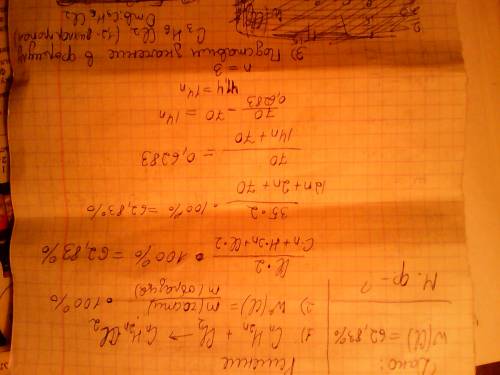 Дано:
W(Cl) = 62,83%
М. ф - ?
Решение
1) CnH2n + Cl2 → CnH2nCl2
2) W(Cl) = m(части) / m(образца) · 100%
Cl·2 / C·n+H·2n+Cl·2 · 100% = 62,83%
35·2 / 12n+2n+70 · 100% = 62,83%
70 / 14n+70 = 0,6283
70 / 0,6283 - 70 = 14n
41,4 = 14n
n = 3
3) Подставим значение в формулу
C3H6Cl2 (1,2-дихлорпропан)
Отв. C3H6Cl2